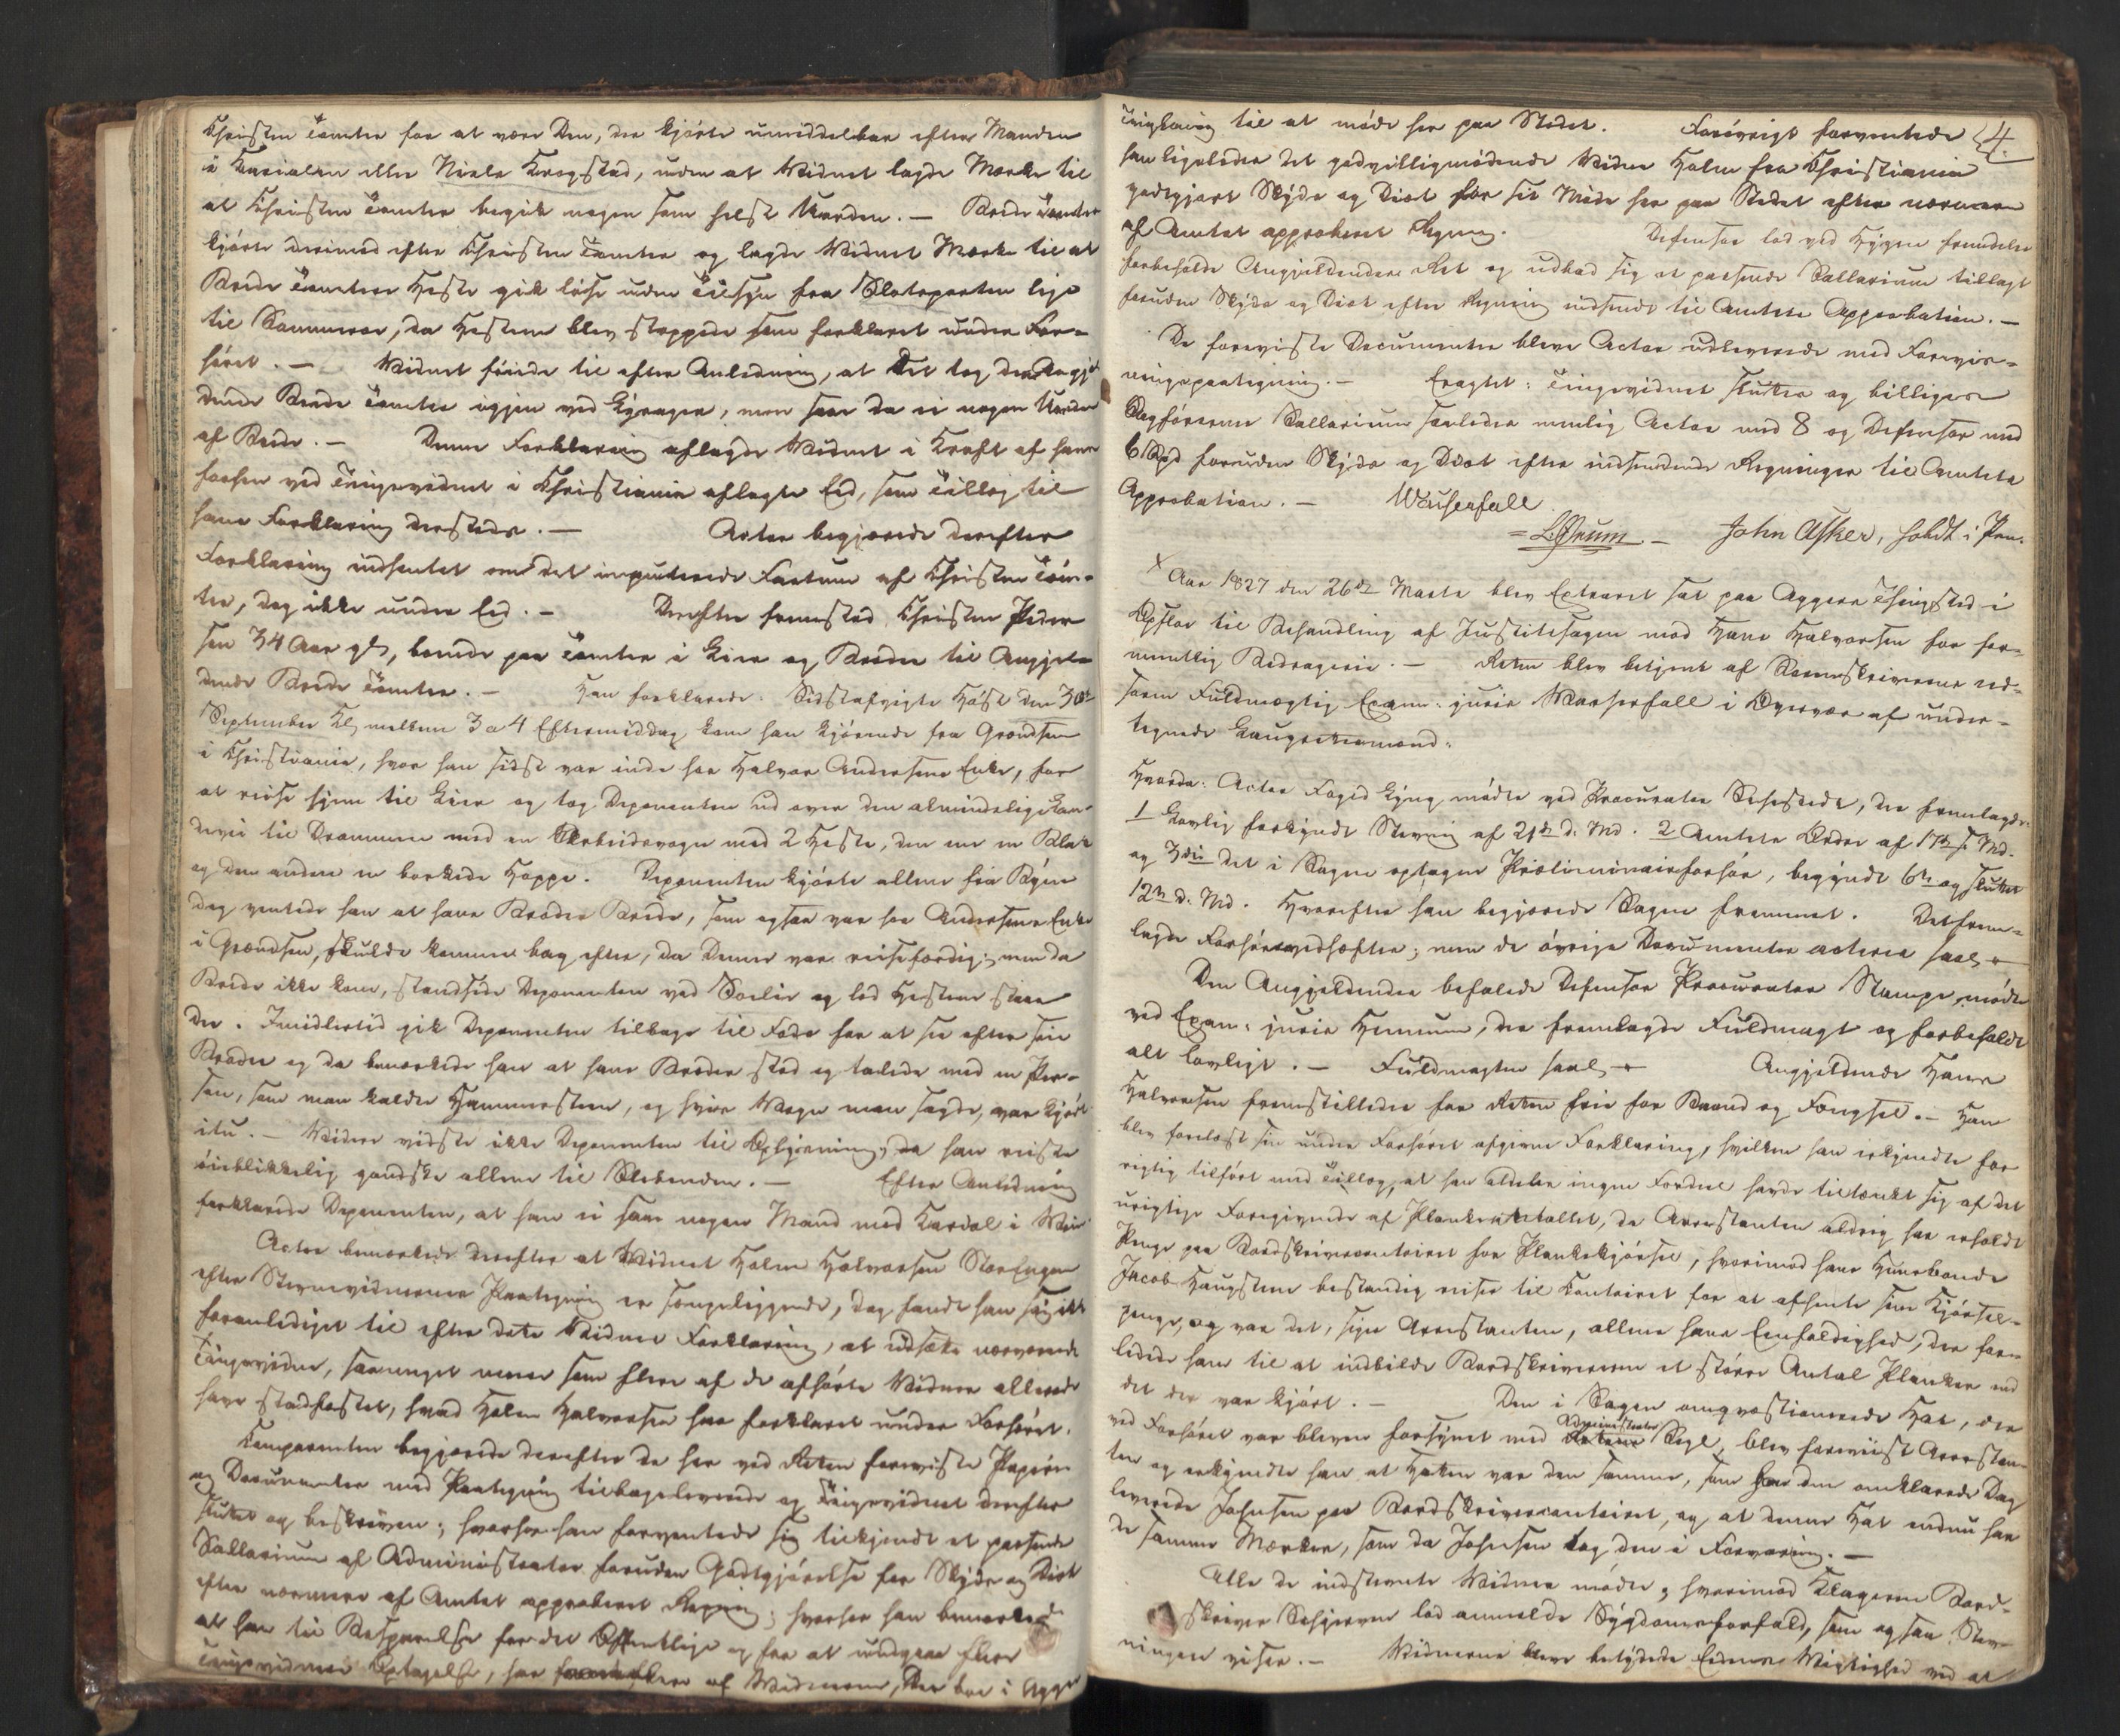 Christen Tomter for at være den, der kjørte umiddelbar efter Manden
i Kariolen eller Niels Krogstad, uden at Vidnet lagde Mærke til
at Christen Tomter begik nogen som helst Uorden. — Brede Tomter
kjørte derimod efter Christen Tomter og lagde Vidnet Mærke til at
Brede Tomters Heste gik løse uden Tilsyn fra Slotsporten lige
til Kammeret, da Hestene blev stoppede som forklaret under For-
høret. — Vidnet føiede til efter Anledning, at det tog den Angjel
dende Brede Tomter igjen ved Lysager, men saae da ei nogen Uorden
af Brede. — Denne Forklaring aflagde Vidnet i Kraft af hans
forhen ved Tingsvidnet i Christiania aflagte Eed, som Tillæg til
hans Forklaring dersteds. — Actor begjærede derefter
Forklaring indhentet om det imputerede Factum af Christen Tom-
ter, dog ikke under Eed. — Derefter fremstod Christen Peder
sen 34 Aar gl, boende paa Tomter i Lier og Broder til Angjel-
dende Brede Tomter. — Han forklarede: Sidstafvigte Høst den 30te
September Kl mellem 3 a 4 Eftermiddag kom han kjørende fra Grændsen
i Christiania, hvor han sidst var inde hos Halvor Andersens Enke, for
at reise hjem til Lier og tog Deponenten ud over den almindelige Lan-
devei til Drammen med en Arbeidsvogn med 2 Heste, den ene en Blak
og den anden en borket Hoppe. Deponenten kjørte allene fra Byen
dog ventede han at hans Broder Brede, som ogsaa var hos Andersens Enke
i Grændsen, skulde komme bag efter, da denne var reisefærdig; men da
Brede ikke kom, standsede Deponenten ved Sollie og lod Hestene staae
der. Imidlertid gik Deponenten tilbage til Fods for at see efter sin
Broder og da bemærkede han at hans Broder stod og talede med en Per-
son, som man kalder Hammersteen, og hvis Vogn man sagde, var kjørt
itu. — Videre vidste ikke Deponenten til Oplysning, da han reiste
øieblikkelig gandske allene til Slebenden. — Efter Anledning
forklarede Deponenten, at han ei saae nogen Mand med Kariol i Veien.
Actor bemærkede derefter at Vidnet Holm Halvorsen Storengen
efter Stevnevidnernes Paategning er sengeliggende, dog fandt han sig ikke
foranlediget til efter dette Vidnes Forklaring, at udsætte nærværende
Tingsvidne, saameget mere som flere af de afhørte Vidner allerede
have stadfæstet, hvad Holm Halvorsen har forklaret under Forhøret.
Comparenten begjærede derefter de her ved Retten foreviste Papirer
og Documenter med Paategning tilbageleverede og Tingsvidnet derefter
sluttet og beskreven; hvorhos han forventede sig tilkjendt et passende
Sallarium af Administrator foruden Godtgjørelse for Skyds og Diæt
efter nærmere af Amtet approberet Regning; hvorhos han bemærkede
at han til Besparelse for det Offentlige og for at undgaae flere
Tingsvidners Optagelse, har flere af Vidnerne, der boe i Agger
Tinglaug til at møde her paa Stedet. Forøvrigt forventede 4.
han ligeledes det godvilligmødende Vidne Holm fra Christiania
godtgjort Skyds og Diæt for sit Møde her paa Stedet efter nærmere
af Amtet approberet Regning. Defensor lod ved Hygen fremdeles
forbeholde Angjeldendes Ret og udbad sig et passende Sallarium tillagt
foruden Skyds og Diæt efter Regning indsendt til Amtets Approbation. —
De foreviste Documenter bleve Actor udleverede med Forevis-
ningspaategning. — Eragtet: Tingsvidnet sluttes og billiges
Sagførerne Sallarium saaledes nemlig Actor med 8 og Defensor med
6 Spd foruden Skyds og Diæt efter indsendende Regninger til Amtets
Approbation. — Wauserfall
L. Ørum — John Asker, holdt i Pen.
x Aar 1827 den 26de Marts blev Extraret sat paa Aggers Thingsted i
Opslo til Behandling af Justitssagen mod Hans Halvorsen for for-
mentlig Bedragerie. — Retten blev betjent af Sorenskriverens ed-
svorne Fuldmægtig Exam: juris Wauserfall i Overvær af under-
tegnede Laugrettesmænd.
Hvorda: Actor Foged Lyng mødte ved Procurator Sehestedt, der fremlagde:
1 Lovlig forkyndt Stevning af 21de d: Md. 2 Amtets Ordre af 17de s. Md.
og 3die det i Sagen optagne Præliminairforhør, begyndt 6te og sluttet
12te d. Md. Hvorefter han begjærede Sagen fremmet. Det frem-
lagte Forhør vedhæftes; men de øvrige Documenter acteres saal.
Den Angjeldendes befalede Defensor Procurator Stampe mødte
ved Exam: juris Hemnum, der fremlagde Fuldmagt og forbeholdt
alt lovligt. — Fuldmagten saal. Angjeldende Hans
Halvorsen fremstilledes for Retten frie for Baand og Fængsel. — Han
blev forelæst sin under Forhøret afgivne Forklaring, hvilken han erkjendte for
rigtig tilført med Tillæg, at han aldeles ingen Fordeel havde tiltænkt sig af det
urigtige Foregivende af Plankeantallet, da Arrestanten aldrig har erholdt
Penge paa Bordskrivercontoiret for Plankekjørsel, hvorimod hans Huusbonde
Jacob Haugsteen bestandig reiser til Kontoiret for at afhente sine Kjørsel-
penge, og var det, siger Arrestanten, allene hans Eenfoldighed, der for-
ledede ham til at indbilde Bordskriveren et større Antal Planker end
det der var kjørt. — Den i Sagen omqvæstionerede Hat, der
ved Forhøret var bleven forsynet med Administrators Segl, blev foreviist Arrestan-
ten og erkjendte han at Hatten var den samme, som han den omklarede Dag
leverede Johnsen paa Bordskrivercontoiret, og at denne Hat endnu har
de samme Mærker, som da Johnsen tog den i Forvaring. —
Alle de indstevnte Vidner mødte; hvorimod Klageren Bord-
skriver Schiørn lod anmelde Sygdomsforfald, som ogsaa Stev-
ningen viser. — Vidnerne bleve betydede Eedens Vigtighed ved at